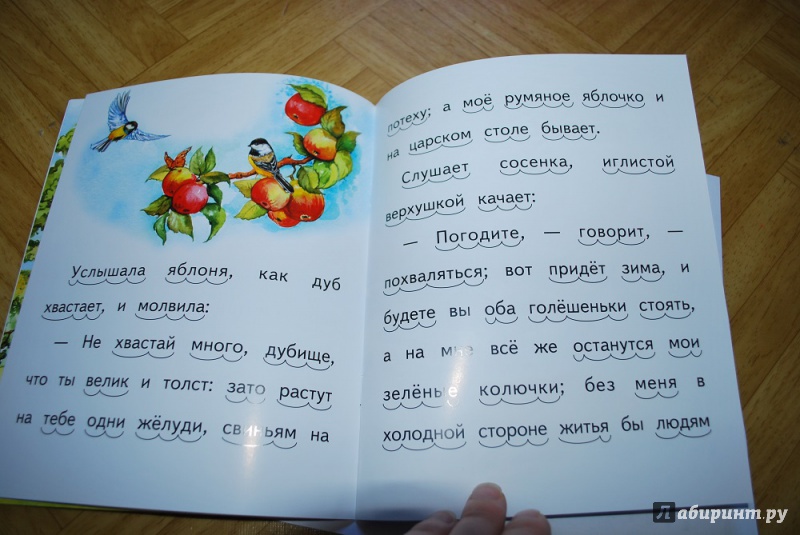 Услышала яблоня, как дуб
хвастает, и молвила:
— Не хвастай много, дубище,
что ты велик и толст: зато растут
на тебе одни жёлуди, свиньям на
потеху; а моё румяное яблочко и
на царском столе бывает.
Слушает сосенка, иглистой
верхушкой качает:
— Погодите, — говорит, —
похваляться; вот придёт зима, и
будете вы оба голёшеньки стоять,
а на мне всё же останутся мои
зелёные колючки; без меня в
холодной стороне житья бы людям
Лабиринт.ру